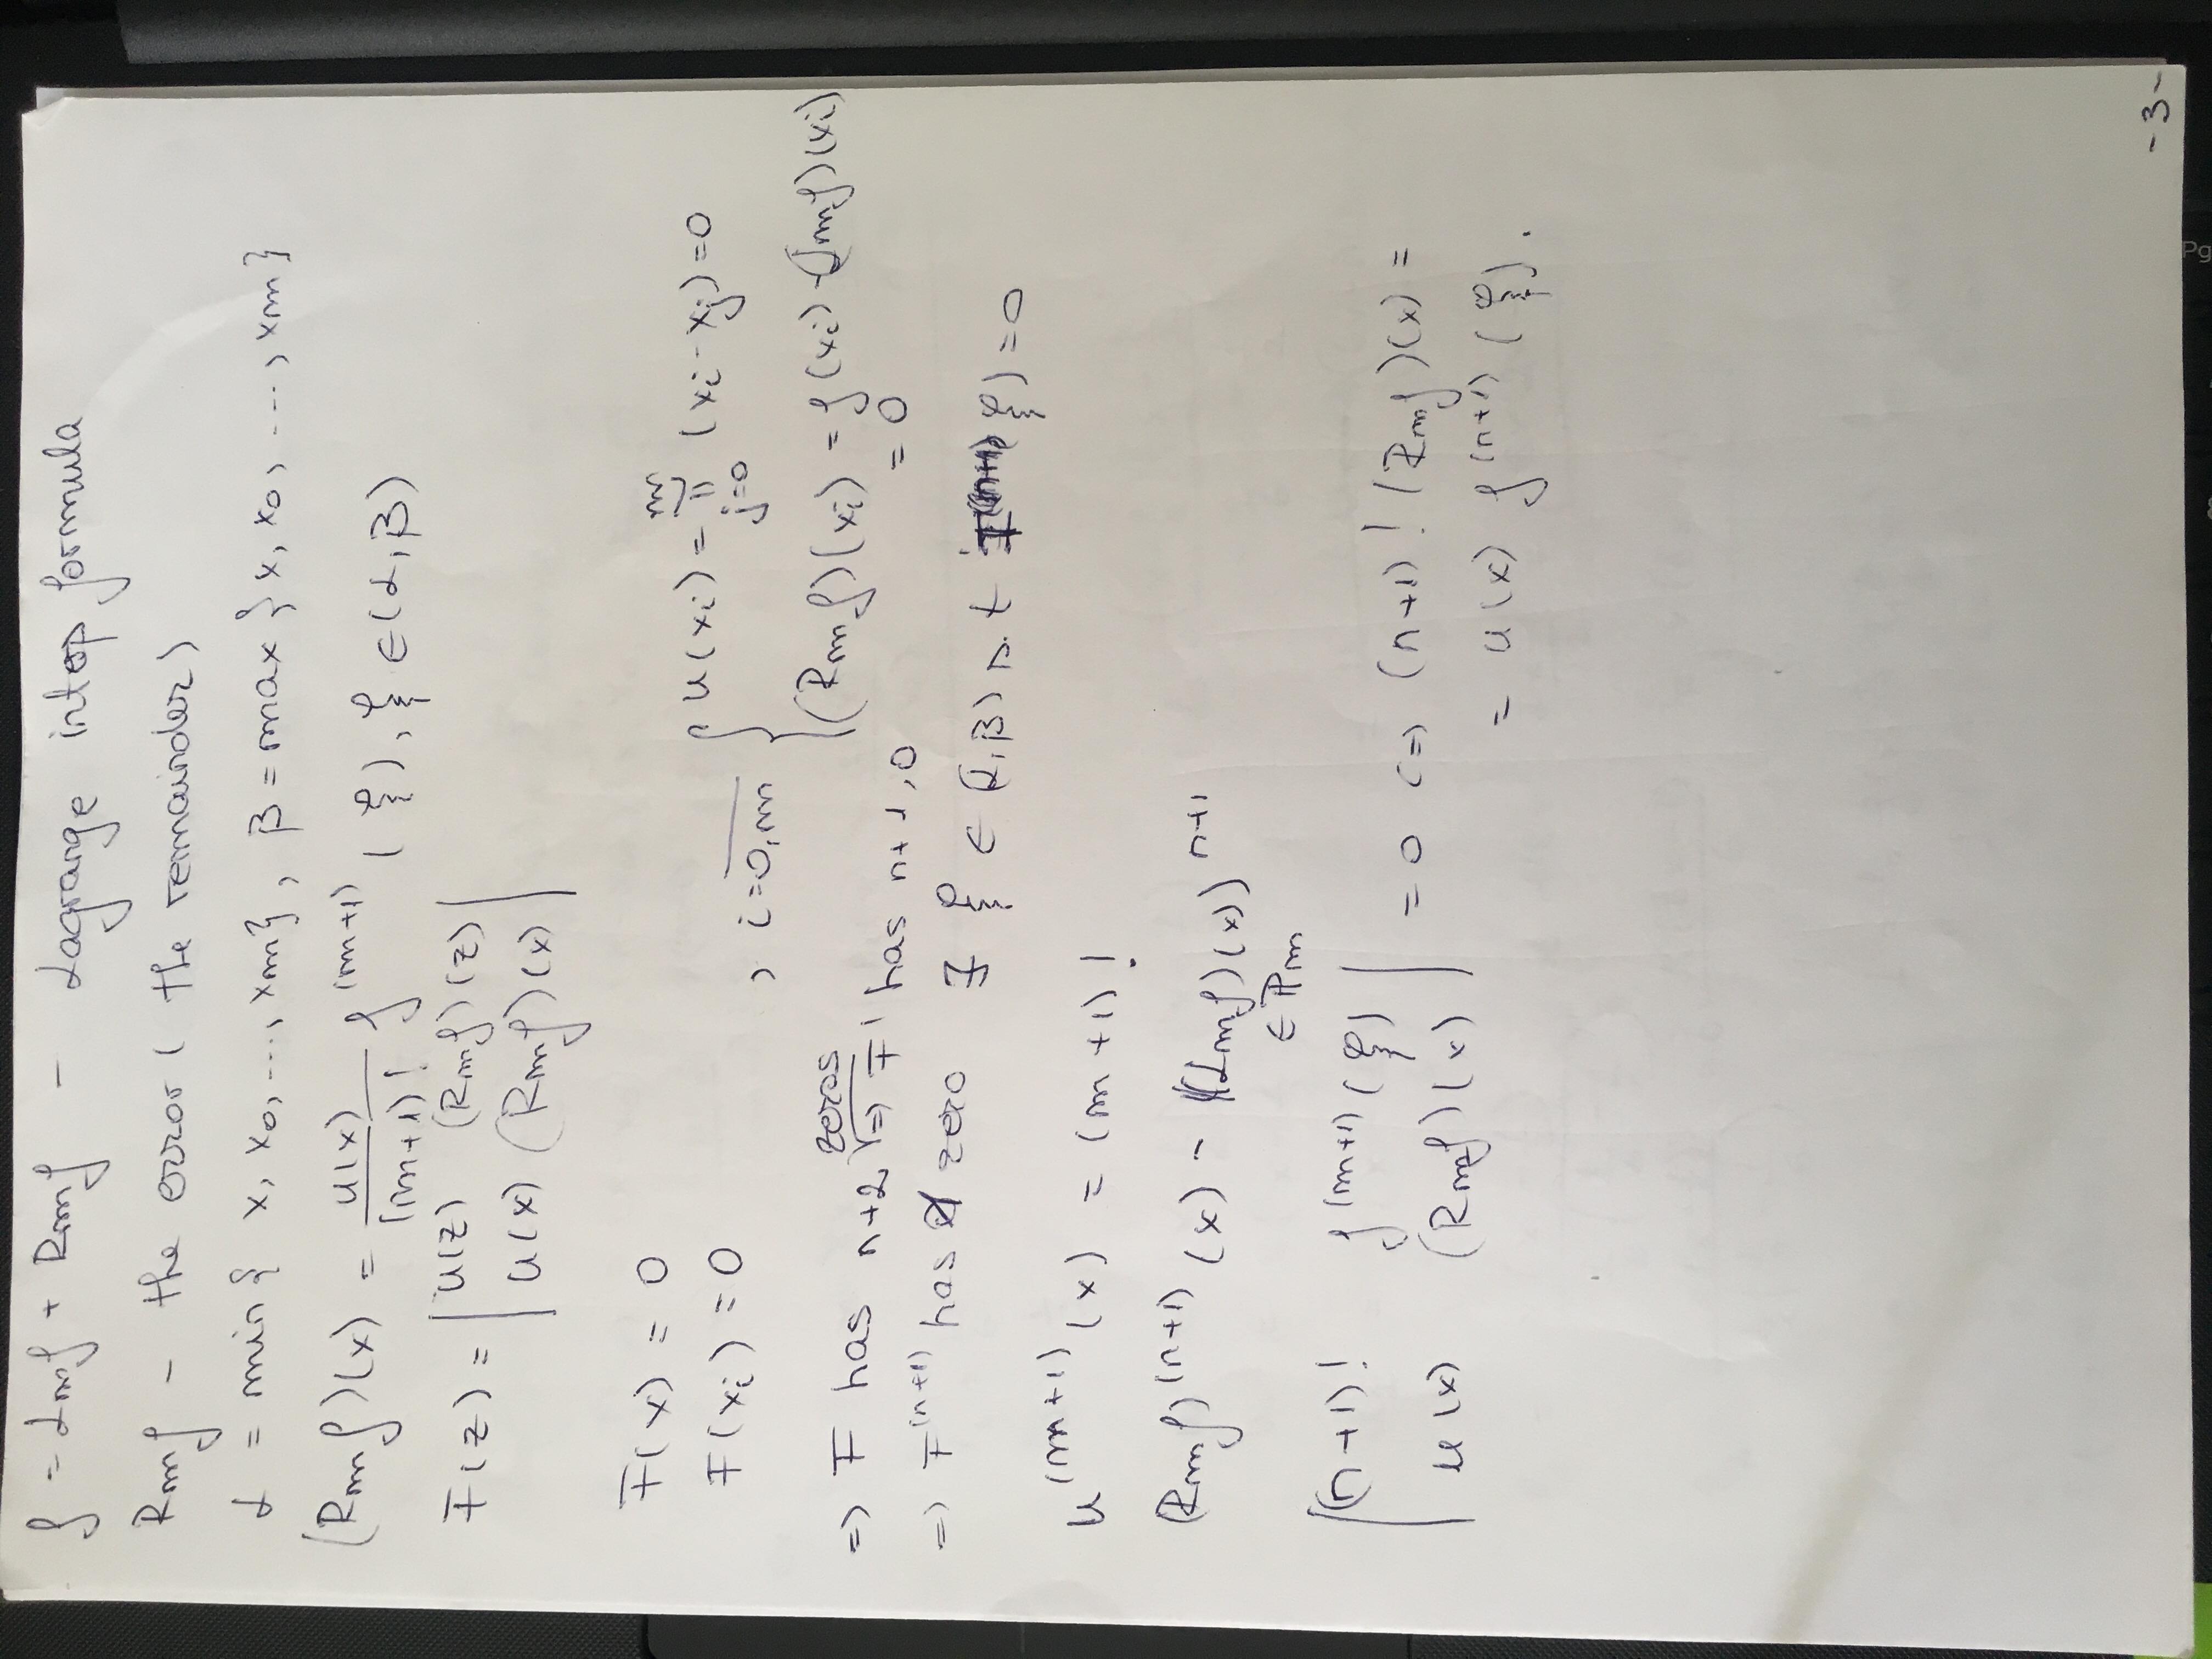 f = Lmf + Rmf - Lagrange interp formula
Rmf - the error (the remainder)
α = min{ x, x0, ..., xm}, β = max {x, x0, ..., xm}
(Rmf)(x) = u(x)/(m+1)! f^(m+1) (ξ), ξ ∈ (α, β)
F(z) = | u(z) (Rmf)(z) |
| u(x) (Rmf)(x) |
F(x) = 0
F(xi) = 0 , i=0,m { u(xi) = m Π j=0 (xi - xj) = 0
(Rmf)(xi) = f(xi) - (Lmf)(xi)
= 0
=> F has n+2 zeros => F' has n+1, 0
=> F^(n+1) has 1 zero ∃ ξ ∈ (α, β) s.t F^(n+1)(ξ) = 0
u^(m+1) (x) = (m+1)!
(Rmf)^(n+1) (x) - ((Lmf)(x))^n+1
∈ Pm
| (n+1)! f^(m+1) (ξ) |
| u(x) (Rmf)(x) | = 0 (=> (n+1)! (Rmf)(x) =
= u(x) f^(n+1) (ξ).
-3-